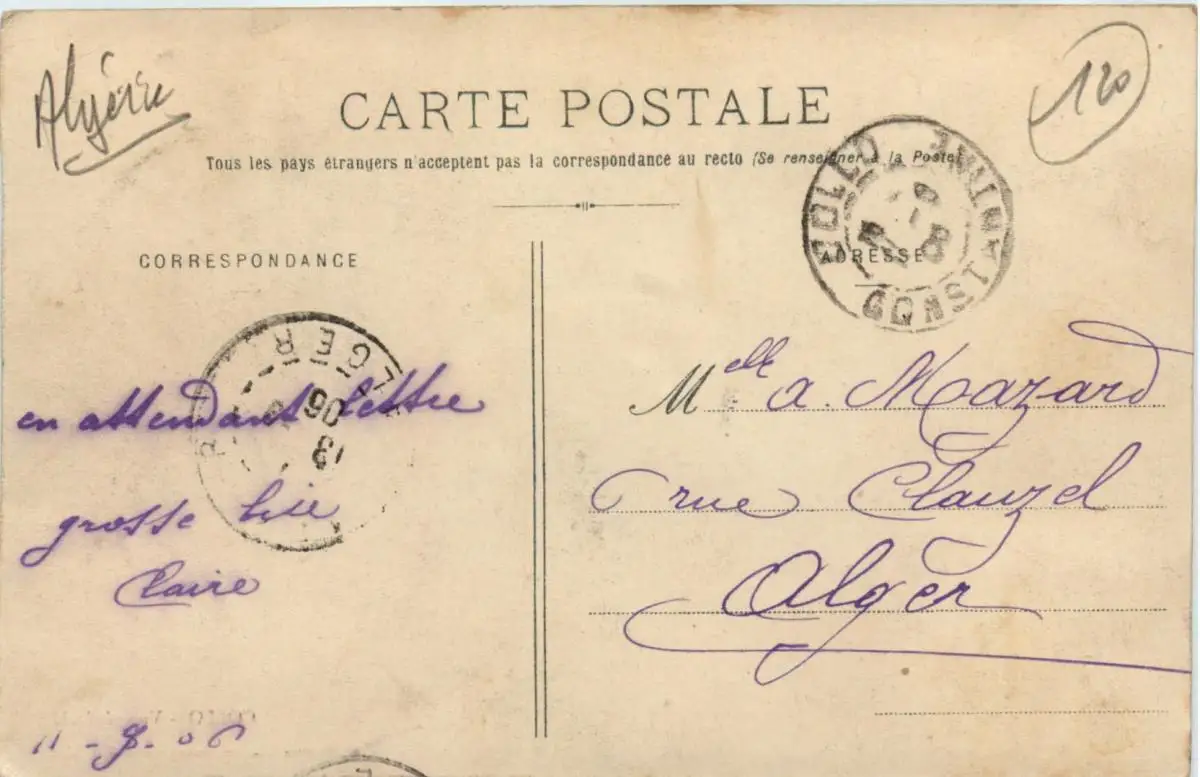 Algérie
120
CARTE POSTALE
Tous les pays étrangers n'acceptent pas la correspondance au recto (Se renseigner à la Poste)
COLLO
CONSTANTINE
CORRESPONDANCE
ADRESSE
ALGER
06
en attendant lettre
grosse bise
Claire
11-8-06
Melle a. Mazard
rue Clauzel
Alger